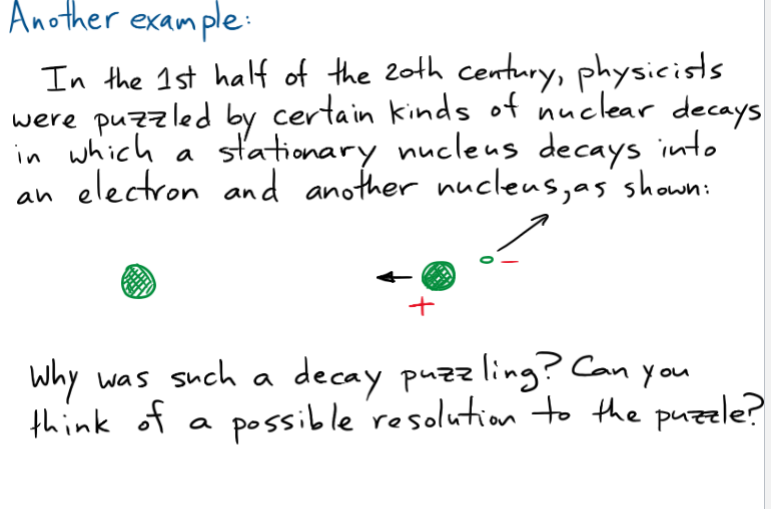 Another example:
In the 1st half of the 20th century, physicists
were puzzled by certain kinds of nuclear decays
in which a stationary nucleus decays into
an electron and another nucleus, as shown:
−
+
Why was such a decay puzzling? Can you
think of a possible resolution to the puzzle?